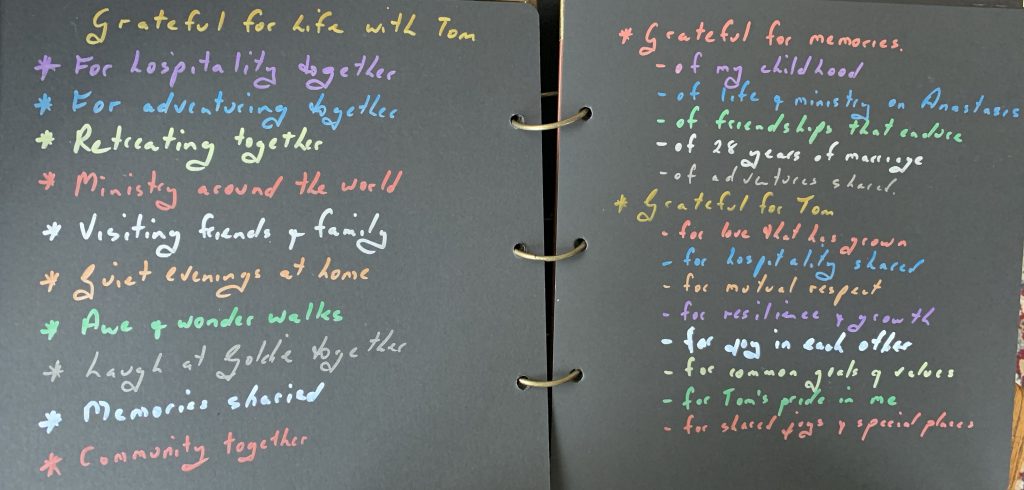 Grateful for Life with Tom
* For hospitality together
* For adventuring together
* Retreating together
* Ministry around the world
* Visiting friends & family
* Quiet evenings at home
* Awe & wonder walks
* Laugh at Goldie together
* Memories sharied
* Community together
* Grateful for memories.
- of my childhood
- of life & ministry on Anastasis
- of friendships that endure
- of 28 years of marriage
- of adventures shared.
* Grateful for Tom
- for love that has grown
- for hospitality shared
- for mutual respect
- for resilience & growth
- for joy in each other
- for common goals & values
- for Tom's pride in me
- for shared joys & special places